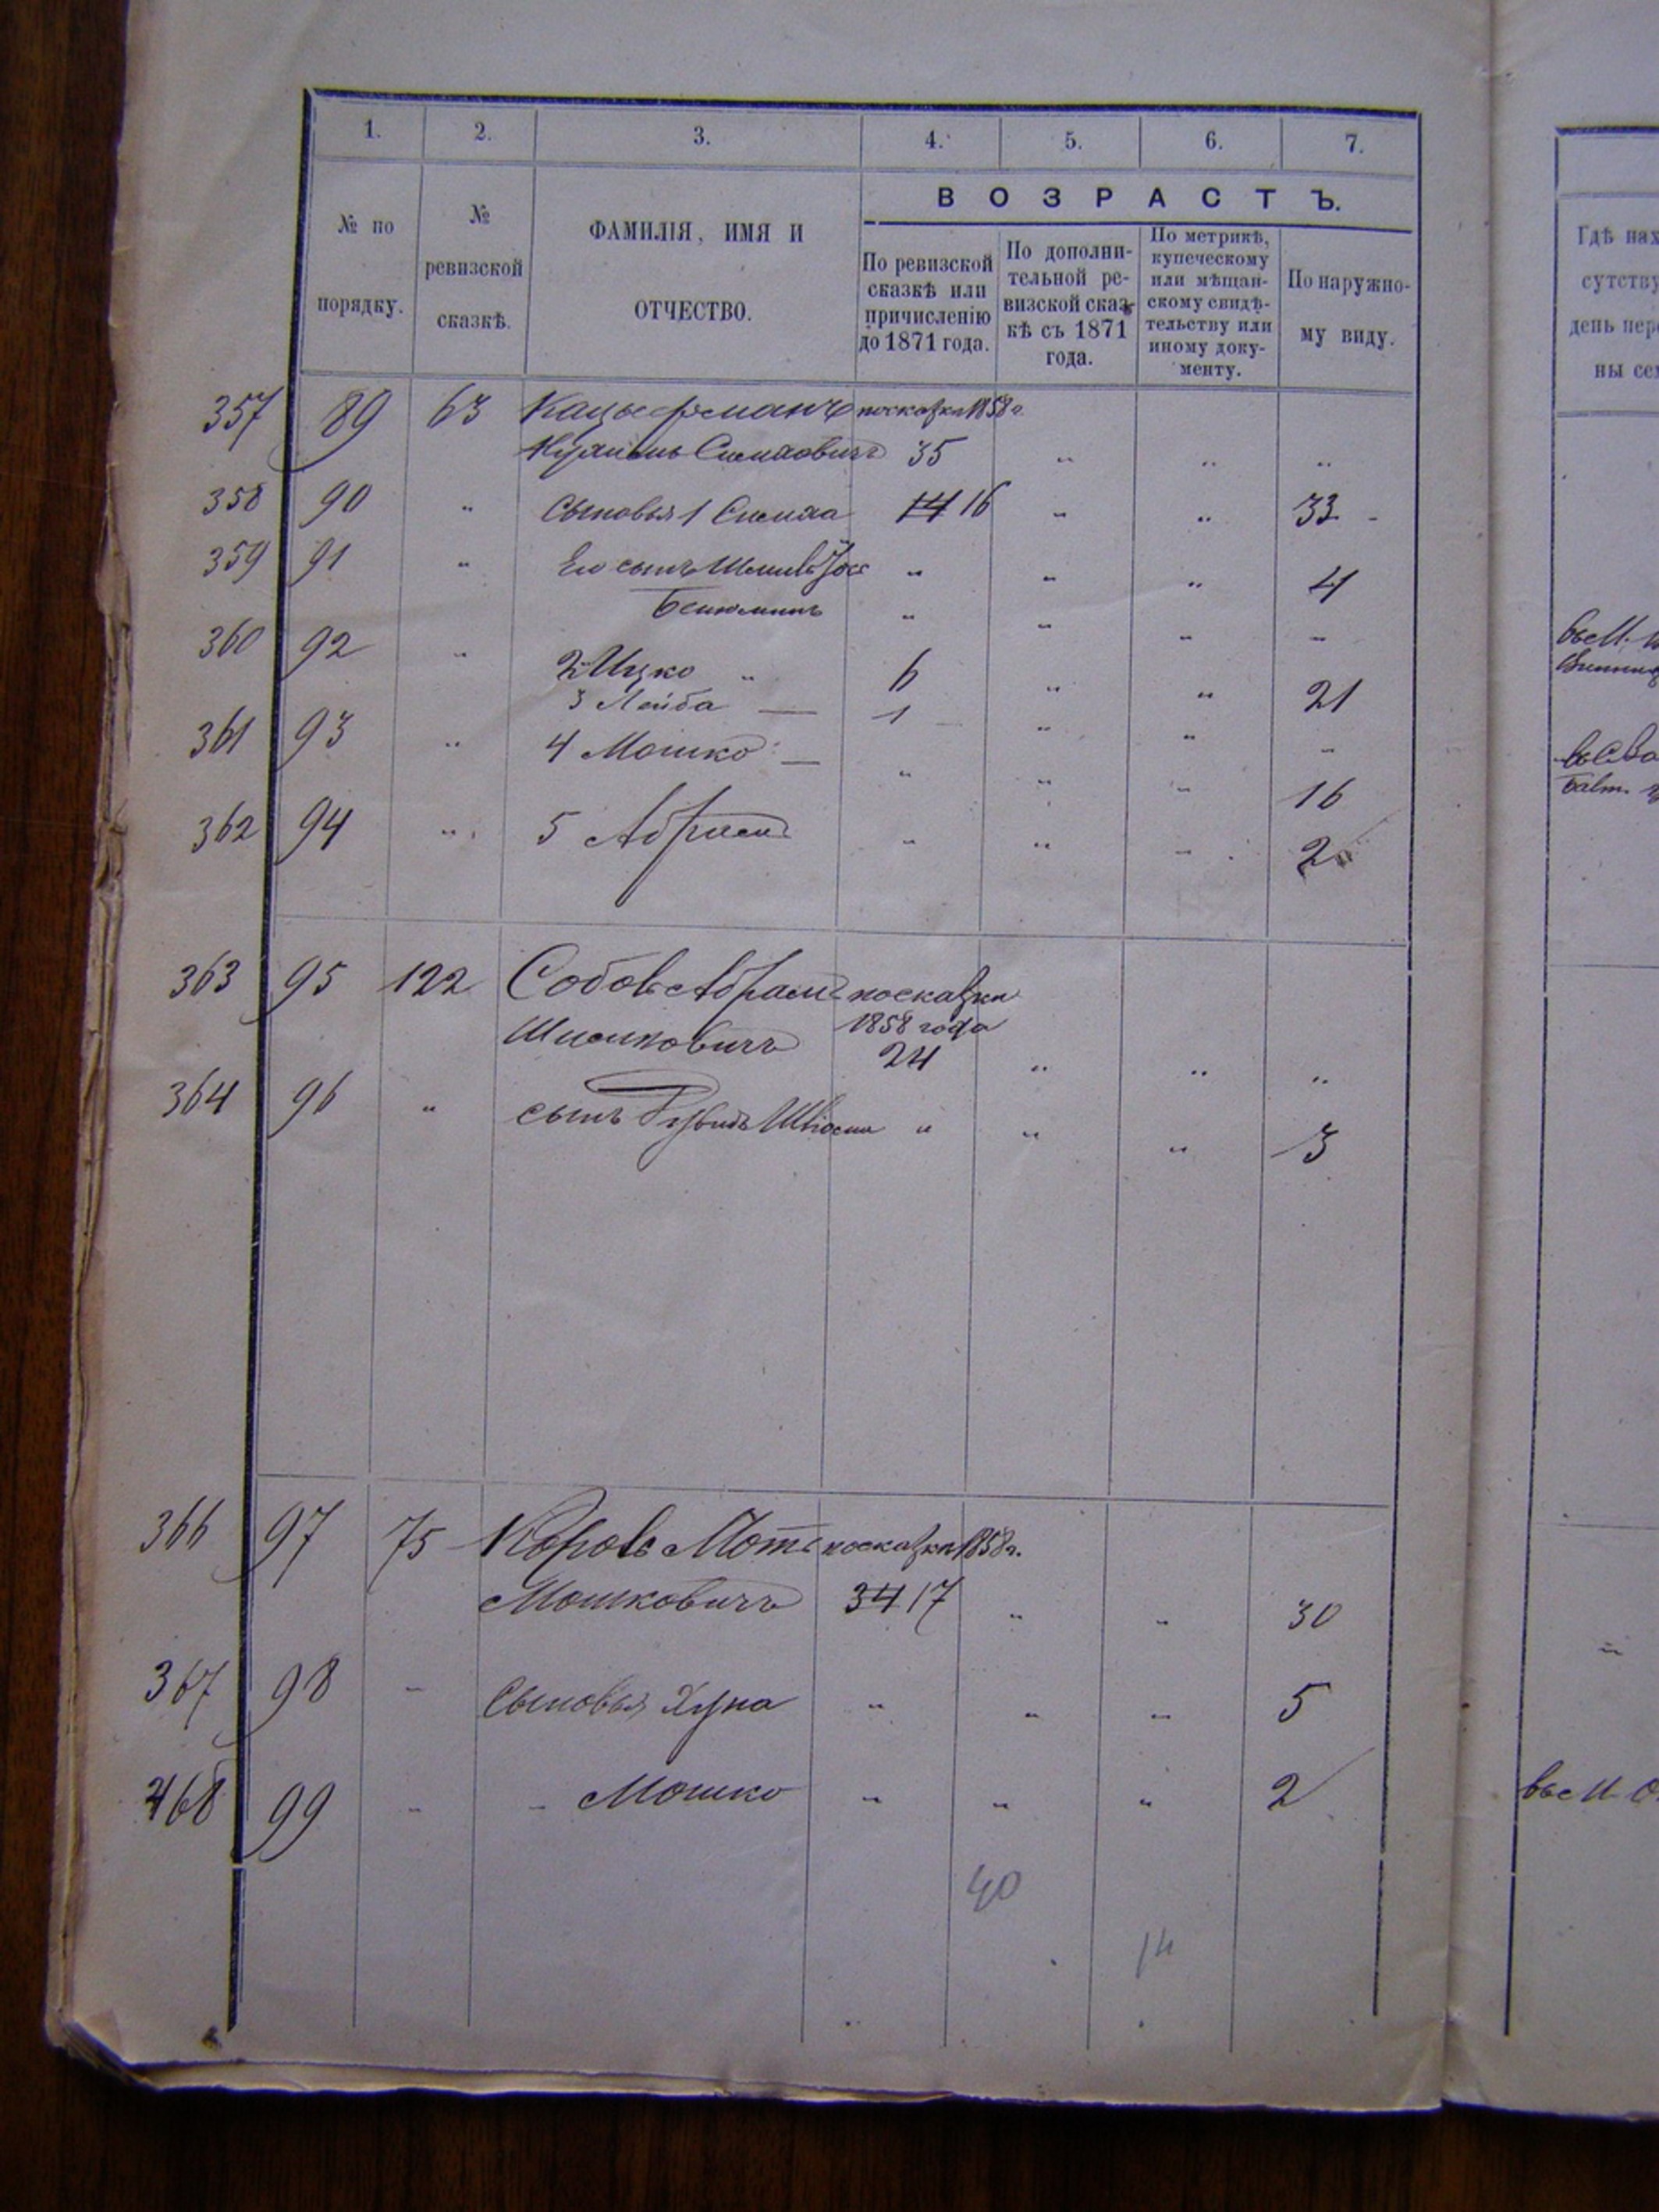 1. 2. 3. 4. 5. 6. 7.
ВОЗРАСТЪ.
№ по порядку.
№ ревизской сказкѣ.
ФАМИЛІЯ, ИМЯ И ОТЧЕСТВО.
По ревизской сказкѣ или причисленію до 1871 года.
По дополнительной ревизской сказкѣ съ 1871 года.
По метрикѣ, купеческому или мѣщанскому свидѣтельству или иному документу.
По наружному виду.
357 89 63 по сказкѣ 1858 г.
35 " " "
358 90 " Сыновья 1 Симха 14 16 " " 33
359 91 " Его сынъ " " " 4
Бенюминъ " " " "
360 92 " 2 Ицко " 6 " " 21
3 Лейба — 1 " " "
361 93 " 4 Мошко — " " " 16
362 94 " 5 Абрамъ " " " 2
363 95 122 Собовъ Абрамъ по сказкѣ
1858 года
24 " " "
364 96 " сынъ " " " 3
366 97 75 Коровъ по сказкѣ 1858 г.
Мошковичъ 34 17 " " 30
367 98 " Сыновья Хуна " " " 5
468 99 " " Мошко " " " 2
40
14
Гдѣ нах
сутству
день пер
ны сем